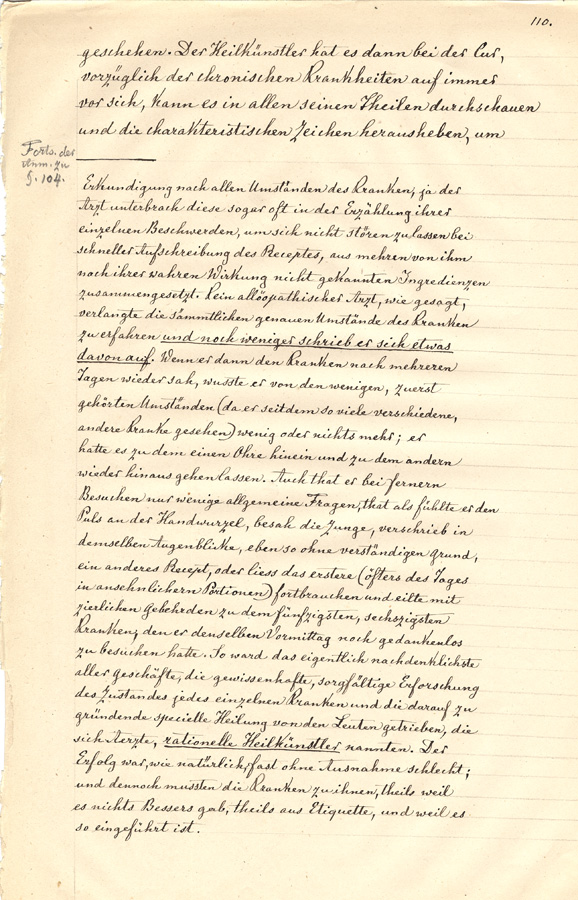 110.
geschehen. Der Heilkünstler hat es dann bei der Cur,
vorzüglich der chronischen Krankheiten auf immer
vor sich, kann es in allen seinen Theilen durchschauen
und die charakteristischen Zeichen herausheben, um
Forts. der
Anm. zu
§. 104.
Erkundigung nach allen Umständen des Kranken, ja der
Arzt unterbrach diese sogar oft in der Erzählung ihrer
einzelnen Beschwerden, um sich nicht stören zu lassen bei
schneller Aufschreibung des Receptes, aus mehren von ihm
nach ihrer wahren Wirkung nicht gekannten Ingredienzen
zusammengesetzt. Kein allöopathischer Arzt, wie gesagt,
verlangte die sämmtlichen genauen Umstände des Kranken
zu erfahren und noch weniger schrieb er sich etwas
davon auf. Wenn er dann den Kranken nach mehreren
Tagen wieder sah, wusste er von den wenigen, zuerst
gehörten Umständen (da er seitdem so viele verschiedene,
andere Kranke gesehen) wenig oder nichts mehr; er
hatte es zu dem einen Ohre hinein und zu dem andern
wieder hinaus gehen lassen. Auch that er bei fernern
Besuchen nur wenige allgemeine Fragen, that als fühlte er den
Puls an der Handwurzel, besah die Zunge, verschrieb in
demselben Augenblicke, eben so ohne verständigen Grund,
ein anderes Recept, oder liess das erstere (öfters des Tages
in ansehnlichern Portionen) fortbrauchen und eilte mit
zierlichen Gebehrden zu dem fünfzigsten, sechszigsten
Kranken, den er denselben Vormittag noch gedankenlos
zu besuchen hatte. So ward das eigentlich nachdenklichste
aller Geschäfte, die gewissenhafte, sorgfältige Erforschung
des Zustandes jedes einzelnen Kranken und die darauf zu
gründende specielle Heilung von den Leuten getrieben, die
sich Aerzte, rationelle Heilkünstler nannten. Der
Erfolg war, wie natürlich, fast ohne Ausnahme schlecht;
und dennoch mussten die Kranken zu ihnen, theils weil
es nichts Bessers gab, theils aus Etiquette, und weil es
so eingeführt ist.